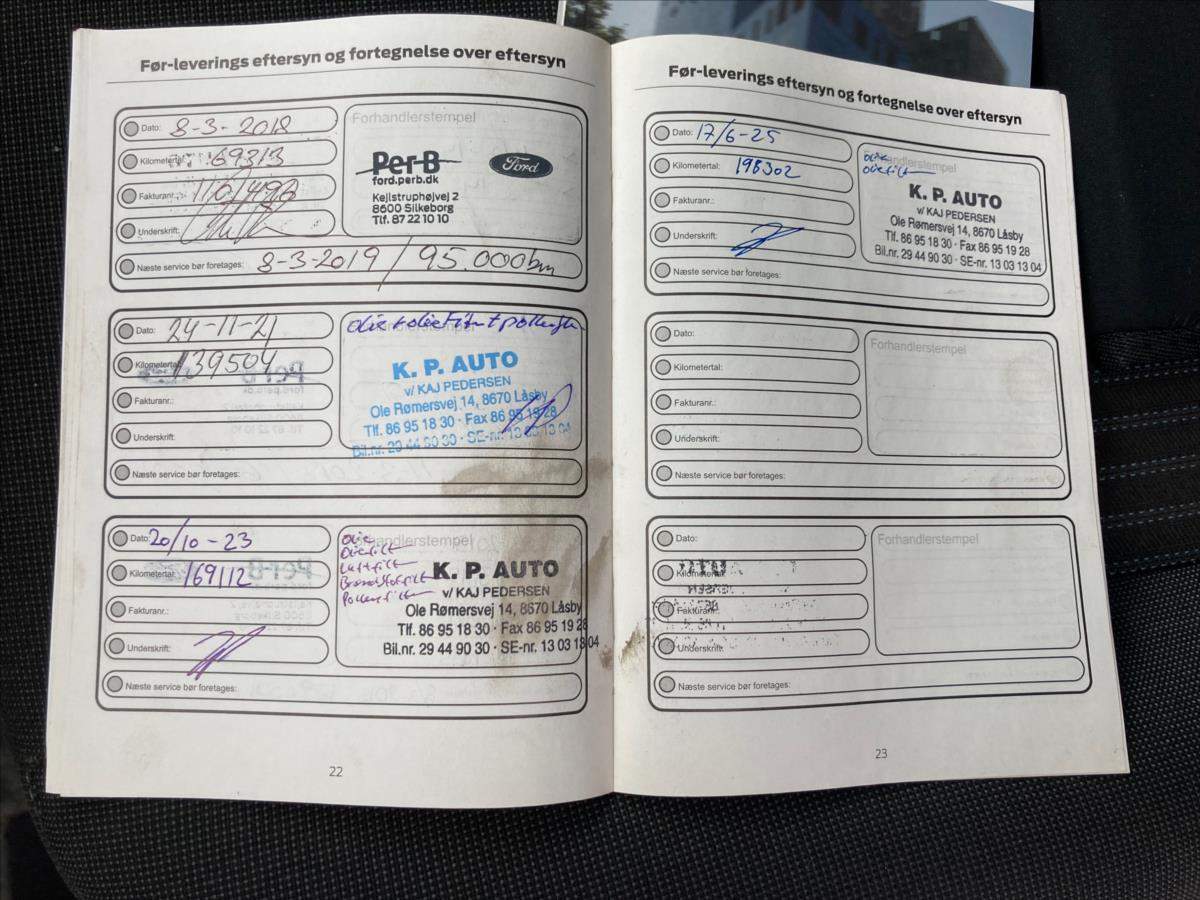 Før-leverings eftersyn og fortegnelse over eftersyn
Dato: 8-3-2018
Kilometertal: 69313
Fakturanr.:
Underskrift:
Næste service bør foretages: 8-3-2019 / 95.000km
Forhandlerstempel
Per-B
ford.perb.dk
Kejlstruphøjvej 2
8600 Silkeborg
Tlf. 87 22 10 10
Ford
Dato: 24-11-21
Kilometertal: 139504
Fakturanr.:
Underskrift:
Næste service bør foretages:
K. P. AUTO
v/ KAJ PEDERSEN
Ole Rømersvej 14, 8670 Låsby
Tlf. 86 95 18 30 · Fax 86 95 19 28
Bil.nr. 29 44 90 30 · SE-nr. 13 03 13 04
Dato: 20/10-23
Kilometertal: 169112
Fakturanr.:
Underskrift:
Næste service bør foretages:
Forhandlerstempel
Olie
Oliefilt
Luftfilt
Brændstoffilt
Pollenfilter
K. P. AUTO
v/ KAJ PEDERSEN
Ole Rømersvej 14, 8670 Låsby
Tlf. 86 95 18 30 · Fax 86 95 19 28
Bil.nr. 29 44 90 30 · SE-nr. 13 03 13 04
22
Før-leverings eftersyn og fortegnelse over eftersyn
Dato: 17/6-25
Kilometertal: 198302
Fakturanr.:
Underskrift:
Næste service bør foretages:
Forhandlerstempel
Olie
Oliefilt
K. P. AUTO
v/ KAJ PEDERSEN
Ole Rømersvej 14, 8670 Låsby
Tlf. 86 95 18 30 · Fax 86 95 19 28
Bil.nr. 29 44 90 30 · SE-nr. 13 03 13 04
Dato:
Kilometertal:
Fakturanr.:
Underskrift:
Næste service bør foretages:
Forhandlerstempel
Dato:
Kilometertal:
Fakturanr.:
Underskrift:
Næste service bør foretages:
Forhandlerstempel
23